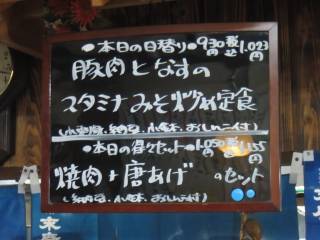 ●本日の日替り●930円 税込1,023円
豚肉となすの
スタミナみそ炒め定食
(小刺身、納豆、小鉢、おしんこ付)
●本日の得々セット●1,050円
焼肉+唐あげのセット
(納豆、小鉢、おしんこ付)